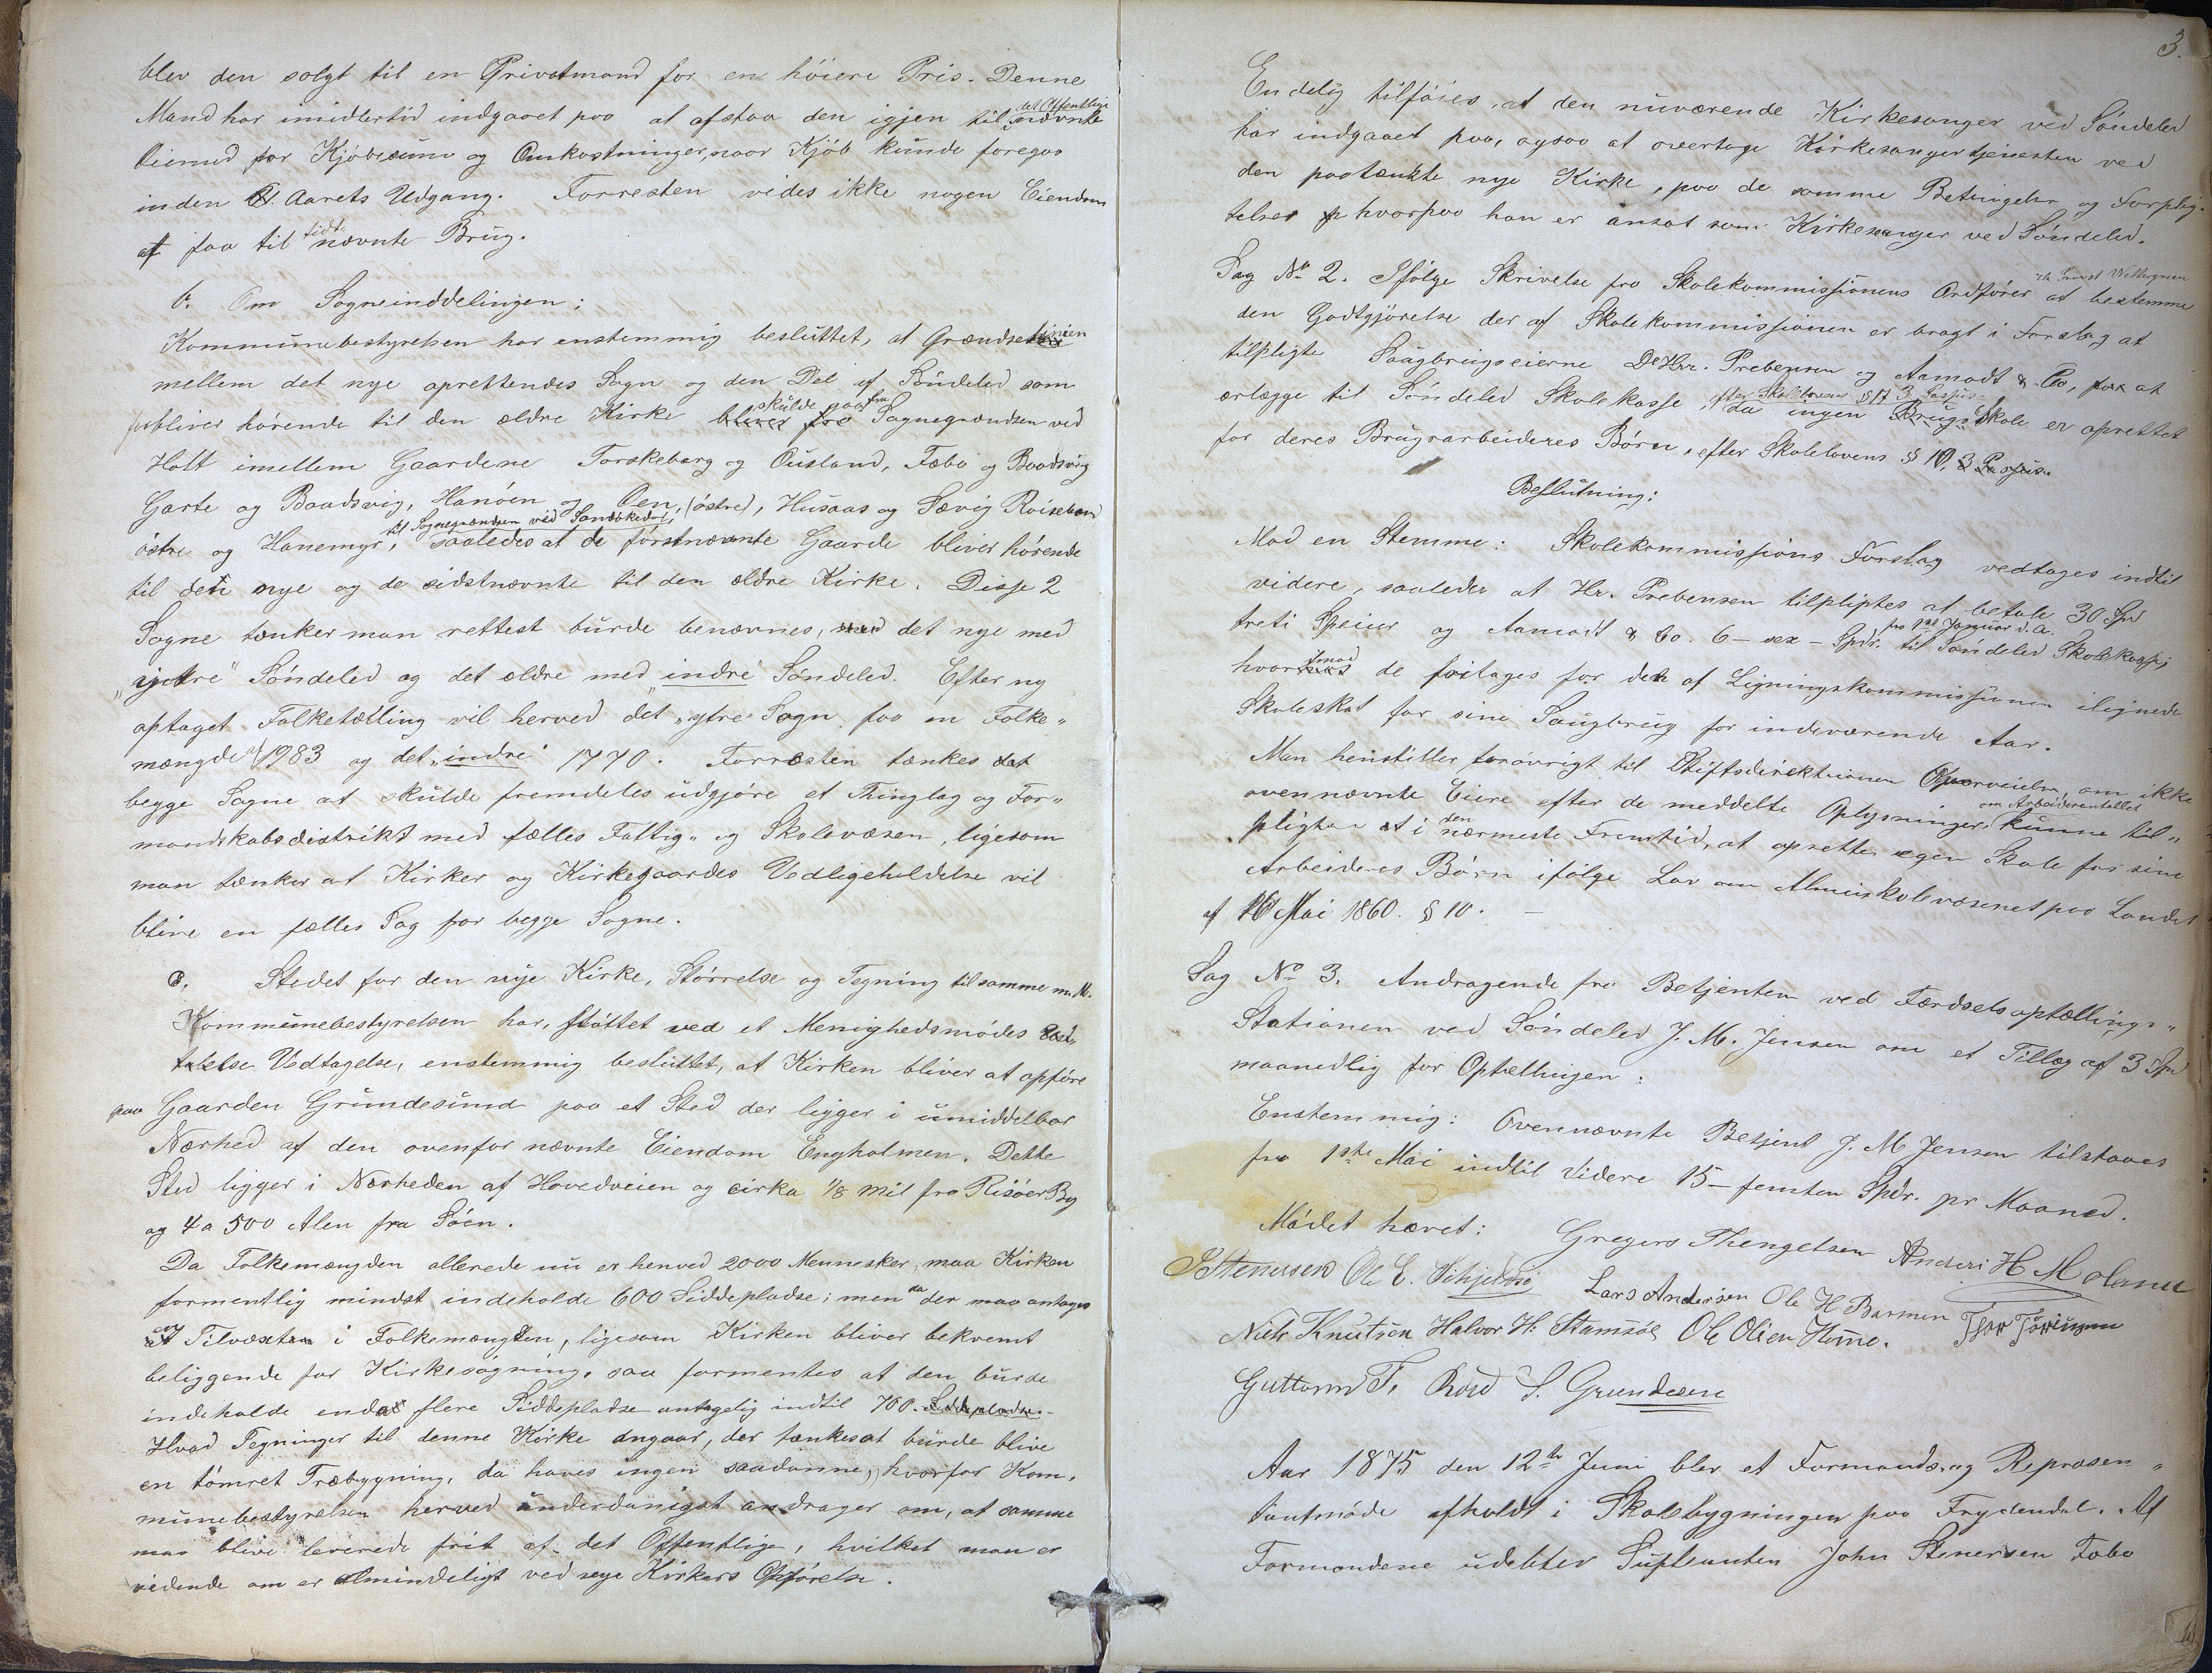 blev den solgt til en Privatmand for en høiere Pris. Denne
Mand har imidlertid indgaaet paa at afstaa den igjen til det Offentlige nævnte
Øiemed for Kjøbesum og Omkostninger, naar Kjøb kunde foregaa
inden Aarets Udgang. Forresten vides ikke nogen Eiendom
at faa til sidtnævnte Brug.
b. Om Sogneinddelingen:
Kommunebestyrelsen har enstemmig besluttet, at Grændselinien
mellem det nye oprettendes Sogn og den Del af Søndeled som
forbliver hørende til den ældre Kirke skulde gaa fra Sognegrændsen ved
Holt imellem Gaardene Torskeberg og Ousland, Fæbo og Boodsvig
Garte og Baadsvig, Hanøen og Øen, (østre), Husaas og Sævig Røiseland
østre og Hanemyr, til Sognegrændsen ved Sandøkedal, saaledes at de førstnævnte Gaarde bliver hørende
til den nye og de sidstnævnte til den ældre Kirke. Disse 2
Sogne tænker man rettest burde benævnes, det nye med
"ytre" Søndeled og det ældre med "indre" Søndeled. Efter ny
optaget Folketælling vil herved det "ytre" Sogn faa en Folke-
mængde af 1983 og det "indre" 1770. Forresten tænkes
begge Sogne at skulde fremdeles udgjøre et Thinglag og For-
mandskabsdistrikt med fælles Fattig- og Skolevæsen, ligesom
man tænker at Kirker og Kirkegaardes Vedligeholdelse vil
blive en fælles Sag for begge Sogne.
c. Stedet for den nye Kirke, Størrelse og Tegning til samme m. M.
Kommunebestyrelsen har, støttet ved et Menighedsmødes
Vedtagelse, enstemmig besluttet, at Kirken bliver at opføre
paa Gaarden Grundesund paa et Sted der ligger i umiddelbar
Nærhed af den ovenfor nævnte Eiendom Engholmen. Dette
Sted ligger i Nærheden af Hovedveien og cirka 1/8 Mil fra Risøer By
og 4 a 500 Alen fra Søen.
Da Folkemængden allerede nu er henved 2000 Mennesker, maa Kirken
formentlig mindst indeholde 600 Siddepladse; men da der maa antages
en Tilvæxt i Folkemængden, ligesom Kirken bliver bekvemt
beliggende for Kirkesøgning, saa formentes at den burde
indeholde endda flere Siddepladse antagelig indtil 700. Siddepladse.
Hvad Tegninger til denne Kirke angaar, der tænkes at burde blive
en tømret Træbygning, da haves ingen saadanne, hvorfor Kom-
munebestyrelsen herved underdanigst andrager om, at samme
maa blive leverede frit af det Offentlige, hvilket man er
vidende om er almindeligt ved nye Kirkers Opførelse.
3.
Endelig tilføies, at den nuværende Kirkesanger ved Søndeled
har indgaaet paa, ogsaa at overtage Kirkesangertjenesten ved
den paatænkte nye Kirke, paa de samme Betingelser og Forplig-
telser hvorpaa han er ansat som Kirkesanger ved Søndeled.
Sag No 2. Ifølge Skrivelse fra Skolekommissionens Ordfører Hr. Provst Wettergreen at bestemme
den Godtgjørelse der af Skolekommissionen er bragt i Forslag at
tilpligte Saugbrugseierne DeHrr. Prebensen og Aamodt & Co, at
erlægge til Søndeled Skolekasse, efter Skolelovens § 17 3 Passus da ingen Brugsskole er oprettet
for deres Brugsarbeideres Børn, efter Skolelovens § 10, 3 Passus.
Beslutning:
Mod en Stemme: Skolekommissions Forslag vedtages indtil
videre, saaledes at Hr. Prebensen tilpligtes at betale 30 Spd
treti Speier og Aamodt & Co. 6 - sex - Spdr. fra 1ste Januar d. A. til Søndeled Skolekasse;
hvorimod de fritages for den af Ligningskommissionen ilignede
Skoleskat for sine Saugbrug for indeværende Aar.
Man henstiller forøvrigt til Stiftsdirektionen Overveielse, om ikke
ovennævnte Eiere efter de meddelte Oplysninger om Arbeiderantallet kunne til-
pligtes at i den nærmeste Fremtid, at oprette egen Skole for sine
Arbeideres Børn ifølge Lov om Almueskolevæsenet paa Landet
af 16 Mai 1860. § 10. -
Sag No 3. Andragende fra Betjenten ved Færdselsoptællings-
Stationen ved Søndeled J. M. Jensen om et Tillæg af 3 Spd
maanedlig for Optællingen:
Enstemmig: Ovennævnte Betjent J. M Jensen tilstaaes
fra 1ste Mai indtil Videre 15 - femten Spdr. pr Maaned.
Mødet hævet: Gregers Thengelsen Anders H Moland
S Stenersen Ole E. Lars Andersen Ole H Barmen Thor
Niels Knutsen Halvor H. Stamsøe Ole Olsen Home.
Guttorm T. Røed S. Grundesen
Aar 1875 den 12te Juni blev et Formands- og Repræsen-
tantmøde afholdt i Skolebygningen paa Frydendal. Af
Formændene udeblev Supleanten John Stenersen Fæbo